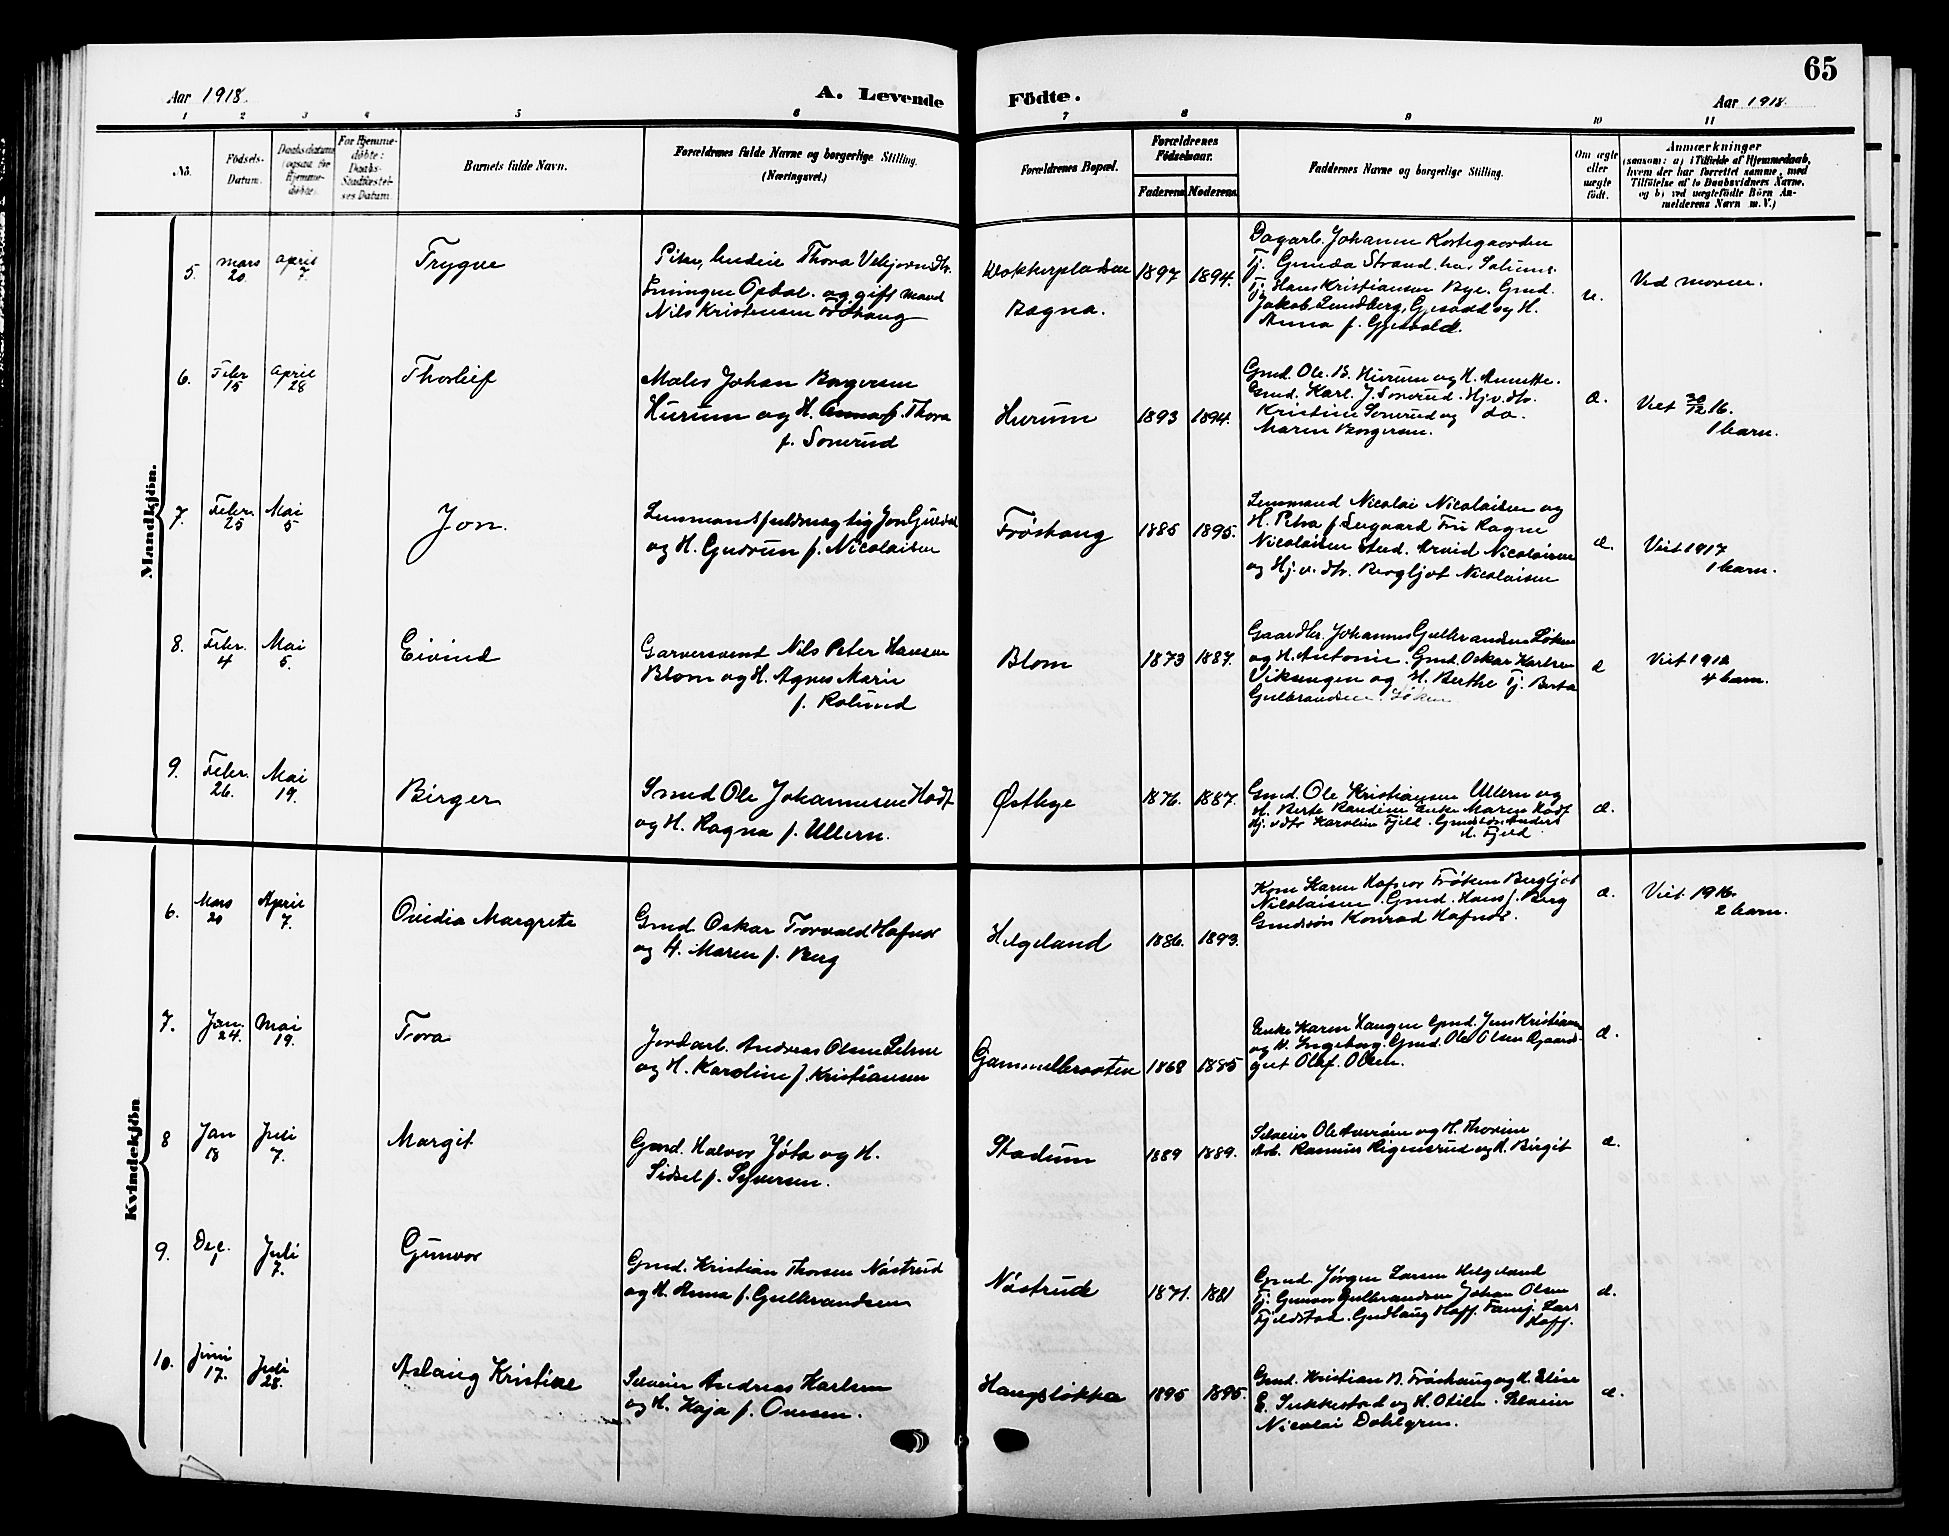 65
Aar 1918.
A. Levende Födte.
Aar 1918.
1 2 3 4 5 6 7 8 9 10 11
No.
Födsels-Datum.
Daabsdatum (ogsaa for Hjemme-döbte.
For Hjemme-döbte: Daabs-Stadfæstel-ses Datum.
Barnets fulde Navn.
Forældrenes fulde Navne og borgerlige Stilling.
(Næringsvei.)
Forældrenes Bopæl.
Forældrenes Födselsaar.
Faderens Moderens
Faddernes Navne og borgerlige Stilling.
Om ægte eller uægte födt.
Anmærkninger
(saasom: a) i Tilfælde af Hjemmedaab,
hvem der har forrettet samme, med
Tilföielse af to Daabsvidners Navne,
og b) ved uægtefödte Börn An-
melderens Navn m. V.)
Mandkjön.
5. mars 20 april 7
Trygve
Pike, Thora
Opdal. og gift mand
Nils Kristensen
Bagna.
1897 1894.
Dagarb. Johannes
Tj. Gunda Strand. hos
Tj. Hans Kristiansen Bye. Gmd.
Jakob Lundberg, og H.
Anna f.
u.
Ved moren.
6. Febr 15 April 28
Thorleif
Maler Johan Borgersen
Hurum og H. Anna f. Thora
f. Sonerud
Hurum
1893 1894.
Gmd. Ole. B. Hurum og H. Annette.
Gmd. Karl J. Sonerud. Hj.v. dtr.
Kristine Sonerud og do.
Maren Borgersen.
æ.
Viet 30/12 16.
1 barn.
7. Febr. 25 Mai 5
Jon.
Lensmandsfuldmægtig Jon
og H. Gudrun f. Nicolaisen
Frøshaug
1885 1895.
Lensmand Nicolai Nicolaisen og
H. Petra f. Fru Ragne
Nicolaisen stud. Arvid Nicolaisen
og Hj. v. dtr. Bergljot Nicolaisen
æ.
Viet 1917
1 barn.
8. Febr. 4 Mai 5.
Eivind
Garversvend Nils Peter Hansen
Blom og H. Agnes Marie
f. Rolund
Blom
1873 1887.
Gaardbr. Johannes Gulbrandsen Løken
og H. Antonie. Gmd. Oskar Karlsen
Viksengen og H. Berthe Tj. Berta
Gulbrandsen Løken
æ
Viet 1912
4 barn.
9. Febr. 26. Mai 19.
Birger
Smed Ole Johannesen Hodt
og H. Ragna f. Ullern.
Østbye
1876. 1887.
Gmd. Ole Kristiansen Ullern og
H. Berte Randine Enke Maren Hodt
Hj. v. dtr Karoline Fjeld. Gmdsøn Anders
A. Fjeld
æ.
Kvindekjön
6. Mars 20 April 7.
Ovidia Margrete
Gmd. Oskar Torvald Hafnor
og H. Maren f. Berg
Helgeland
1886. 1893.
Kone Karen Hafnor Frøken Bergljot
Nicolaisen. Gmd. Hans J. Berg
Gmdssøn Konrad Hafnor.
æ.
Viet 1916.
2 barn.
7. Jan. 24. Mai 19.
Tora
Jordarb. Andreas Olsen
og H. Karoline f. Kristiansen
Gammelbraaten
1868 1885
Enke Karen Haugen Gmd. Jens Kristiansen
og H. Ingeborg. Gmd. Ole Olsen
gut Olaf. Olsen.
æ.
8 Jan 18 Juli 7.
Margit
Gmd. Halvor Jota og H.
Sidsel f. Syversen.
Stadum
1889 1889.
Selveier Ole og H. Thorine
Arb. Rasmus Rigensrud og H. Birgit
æ.
9. Dec. 1 Juli 7.
Gunvor
Gmd. Kristian Thorsen Nøstrud
og H. Anna f. Gulbrandsen
Nøstrud
1871. 1881
Gmd. Jørgen Larsen Helgeland
Tj. Gunvor Gulbrandsen Johan Olsen
Fjeldstad. Gudlaug Hoff. Lars
Hoff.
æ.
10. Juni 17. Juli 28.
Aslaug Kristine
Selveier Andreas Karlsen
og H. Kaja f. Ovesen.
Haugsløkka
1895 1895.
Gmd. Kristian B. Frøshaug og H. Elise
E. Sukkestad og H. Otilie. Selveier
Nicolai Dahlgren.
æ.